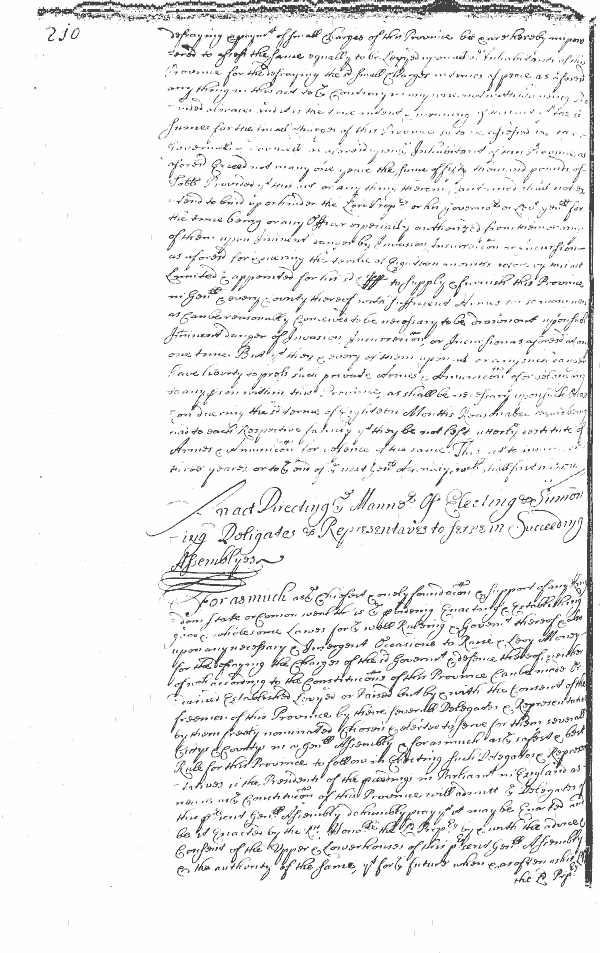 230
defraying & paym.t of small Charges of this Province be & are hereby impow
=ered to assess the same equally to be Levyed upon y.e Inhabitants of this
Province for the defraying the s.d small Charges in times of peace as aforesd
any thing in this act to y.e Contrary in any wise notwithstanding
alwaies and it is the true intent & meaning of this act
Sumes for the small charges of this Province so to be assessed
Inhabitants of this Province as
aforesd Exceed not in any one yeare the sume of fifty thousand pounds of
Tobb Provided y.t this act or any thing therein contained shall not ex
=tend to bind up or hinder the Lord Prop.ry or his Governo.r or Leu.t Gen.ll for
the time being or any Officer especially authorized from them or any
of them upon Iminent danger by Invasion Insurrection or incursion
as aforesd for & dureing the terme of Eighteen months
Limited & appointed for his s.d to Supply & furnish this Province
in Gen.ll & every County thereof with sufficient Armes & amunition
as Can be reasonably Conceived to be necessary to be drawn out upon such
Iminent danger of Invasion Insurrection or Incursion as aforesd at any
one time But y.t they & every of them upon any such danger
have liberty to press such private Armes & Amunition
to any p.son within this Province, as shall be necessary upon such
=on dureing the s.d terme of Eighteen Months Reasonable regard being
had to each Respective family y.t they be not left utterly destitute of
Armes & Amunition for defence of the same This act to
three yeares or to y.e end of y.e next Gen.ll Assembly, w.ch shall first happen
An act Directing y.e Manner Of Electing & Sumon
=ing Deligates & Representatives to serve in Succeeding
Assemblyes
For as much as y.e Chiefest & onely foundation & support of any King
dom State or Comon wealth is y.e providing Enacting & Establishing
good & wholesome Lawes for y.e well Ruleing & Governm.t thereof & also
upon any necessary & Emergent Occasions to Raise & Levy Money
for the defraying the Charges of the s.d Governm.t & defence thereof neither
of w.ch according to the Constitution of this Province Can be made Or
=dained Established Levyed or Raised but by & with the Consent of the
freemen of this Province by there severall Delegates & Representatives
by them freely nominated Chosen & elected to serve for them severall
Cittys & County in a Gen.ll Assembly & for as much as y.e safest & best
Rule for this Province to follow in Electing such Delegates & Represen
=tatives is the Presidents of the p.ceedings in Parliam.t in England as
neare as y.e Constitution of this Province will admitt y.e Delegates of
this p.sent Gen.ll Assembly do humbly pray y.t it may be Enacted and
be it Enacted by the R.t Hono.ble the L.d Prop.ry by & with the advice &
Consent of the Upper & Lower houses of this p.sent Gen.ll Assembly
& the authority of the same, y.t for y.e future when & as often as his
the L.d Prop.ry